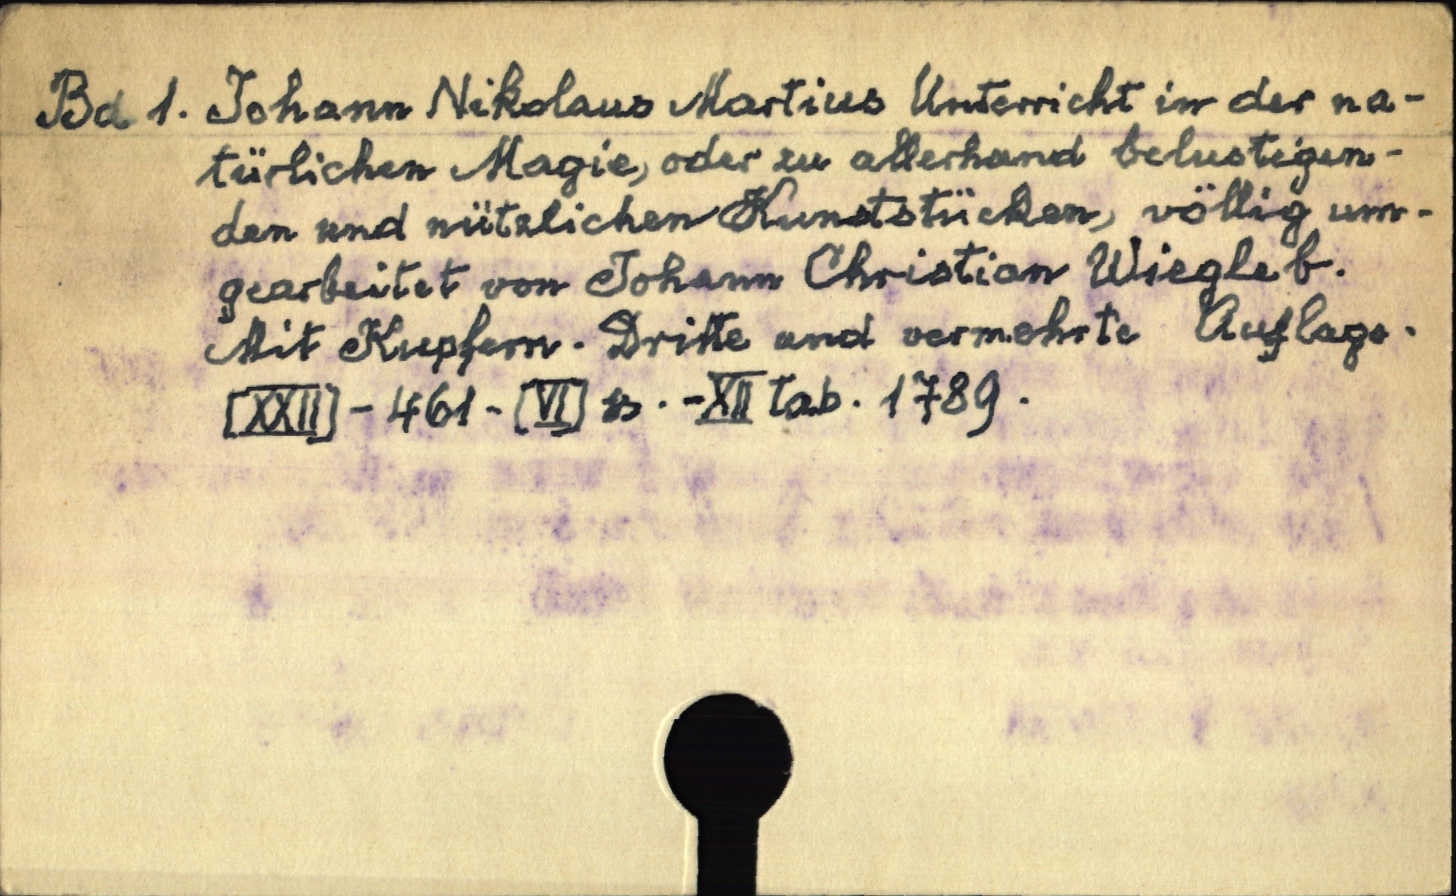 Bd 1. Johann Nikolaus Martius Unterricht in der na-
türlichen Magie, oder zu allerhand belustigen-
den und nützlichen Kunststücken, völlig um-
gearbeitet von Johann Christian Wiegleb.
Mit Kupfern. Dritte und vermehrte Auflage.
[XXII] - 461 - [VI] s. - XII tab. 1789.